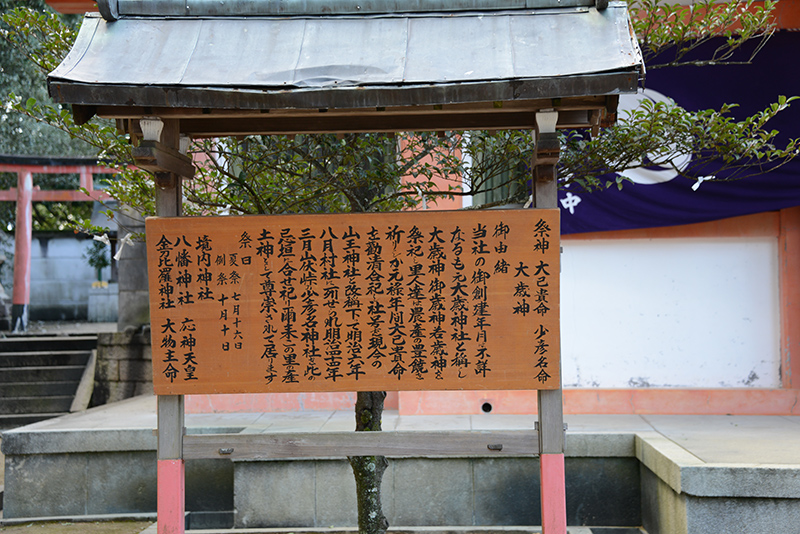 祭神 大己貴命 少彦名命
大歳神
御由緒
当社の御創建年月は不詳
なるも元大歳神社と称し
大歳神御歳神若歳神を
祭祀し里人達は農産の豊饒を
祈りしが元禄年間大己貴命
を勧請合祀し社名を現今の
山王神社と改称下て明治六年
八月村社に列せられ明治四十二年
三月山伏峠少彦名神社を此の
忌垣に合せ祀り爾来この里の産
土神として尊崇されて居ります
祭日
夏祭 七月十六日
例祭 十月十日
境内神社
八幡神社 応神天皇
金刀比羅神社 大物主命
中